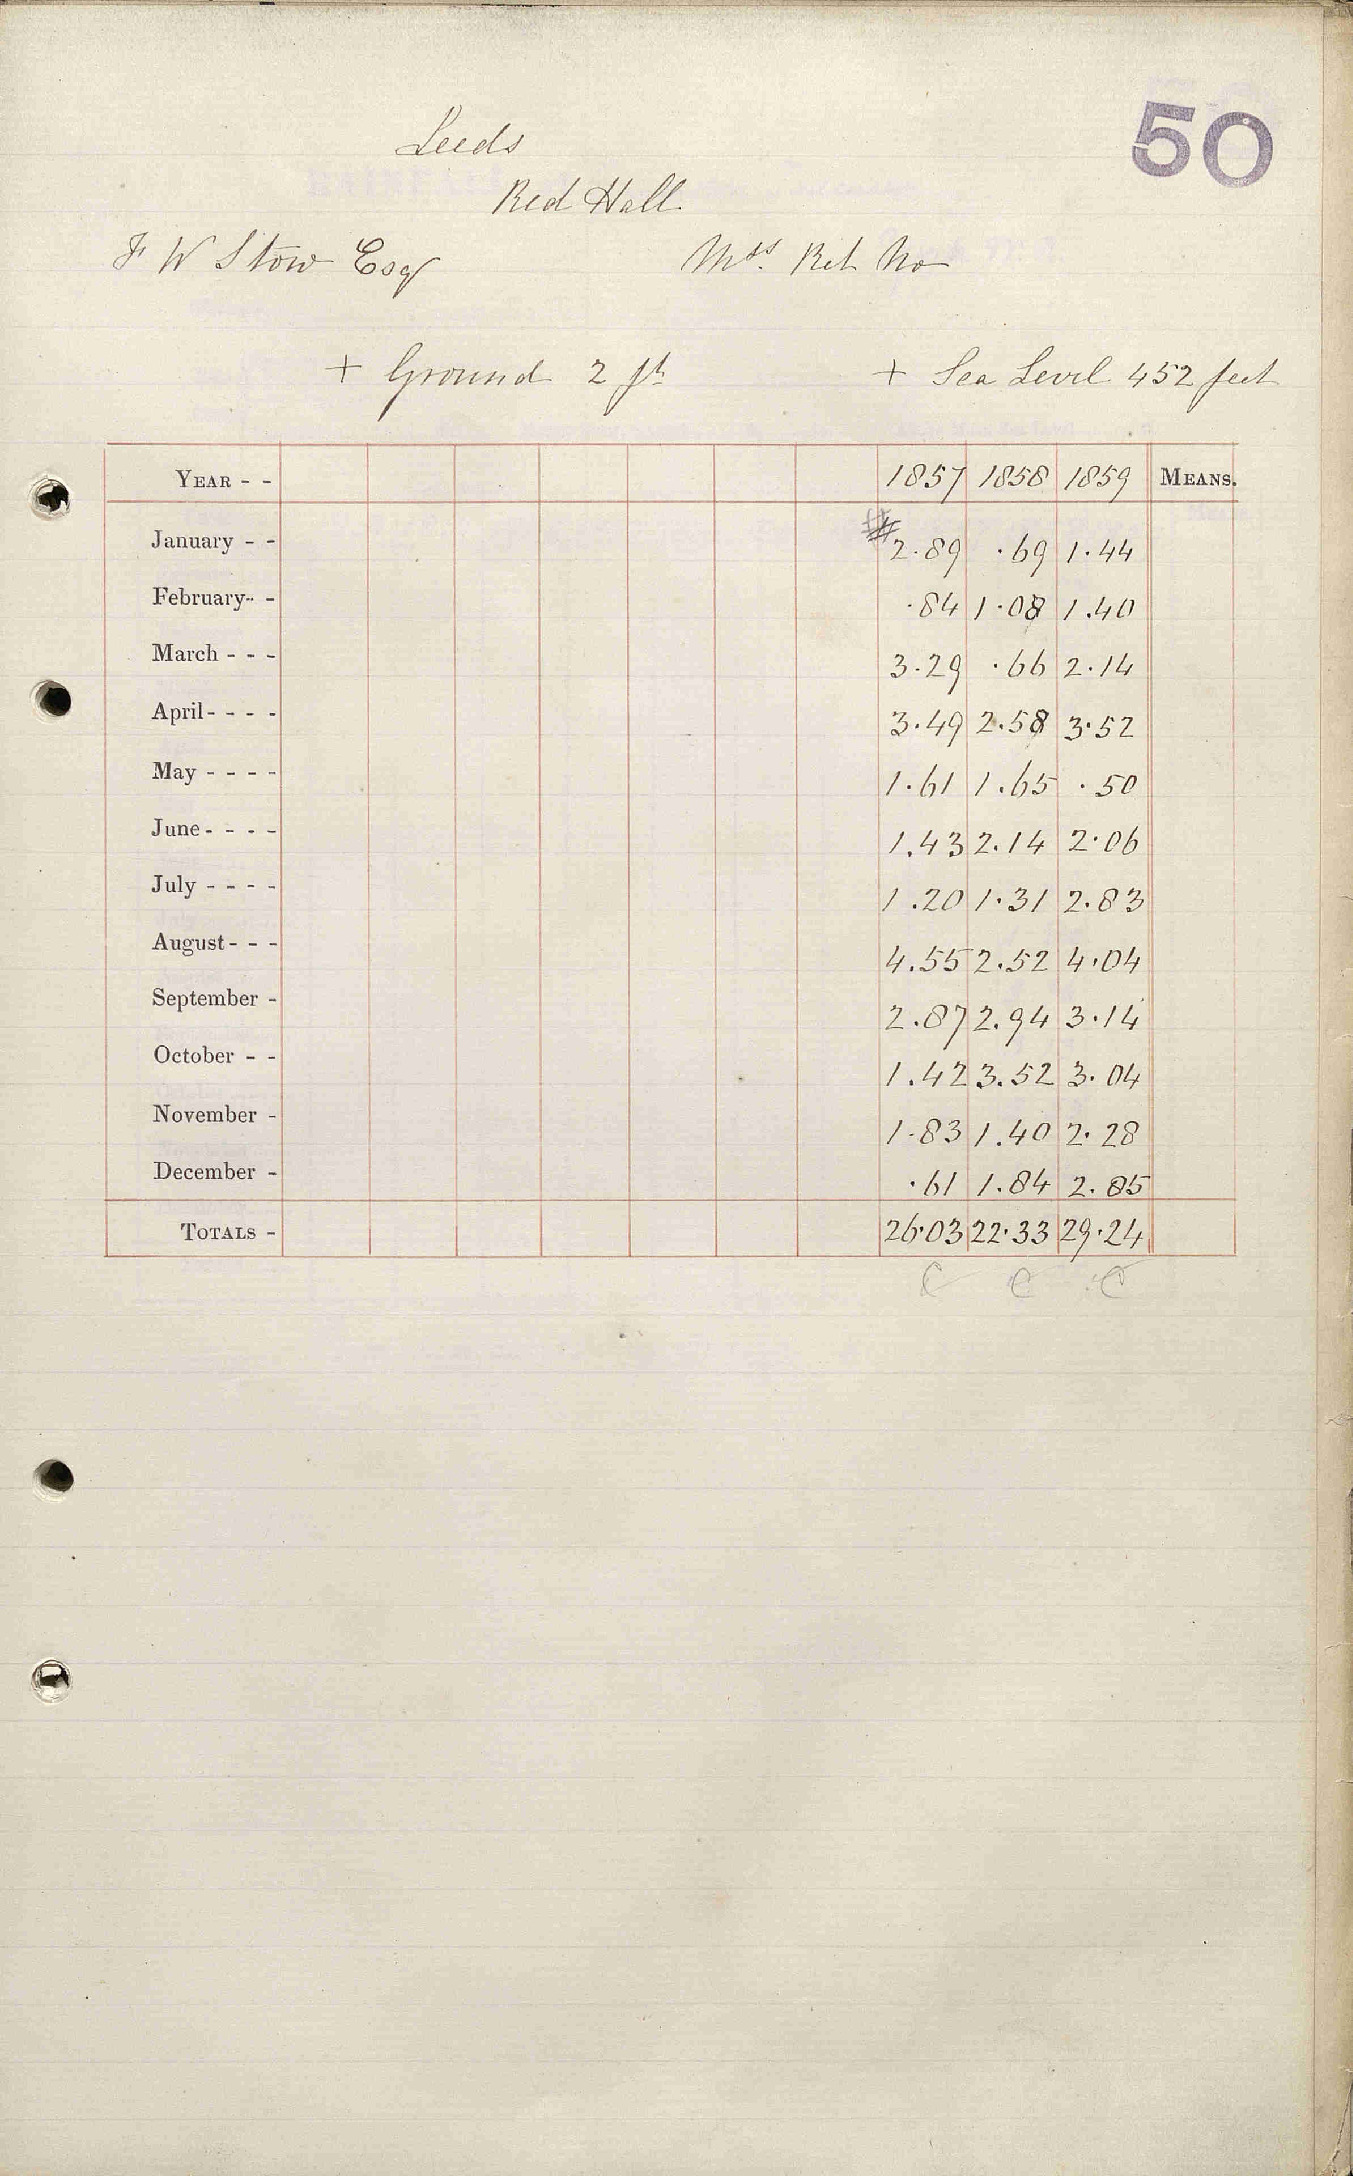 50
Leeds
Red Hall
F W Stow Esq Mss. Ret No
+ Ground 2 ft + Sea Level 452 feet
YEAR - - 1857 1858 1859 MEANS.
January - - 2.89 .69 1.44
February - - .84 1.08 1.40
March - - - 3.29 .66 2.14
April - - - - 3.49 2.58 3.52
May - - - - 1.61 1.65 .50
June - - - - 1.43 2.14 2.06
July - - - - 1.20 1.31 2.83
August - - - 4.55 2.52 4.04
September - 2.87 2.94 3.14
October - - 1.42 3.52 3.04
November - 1.83 1.40 2.28
December - .61 1.84 2.85
TOTALS - 26.03 22.33 29.24
C C C